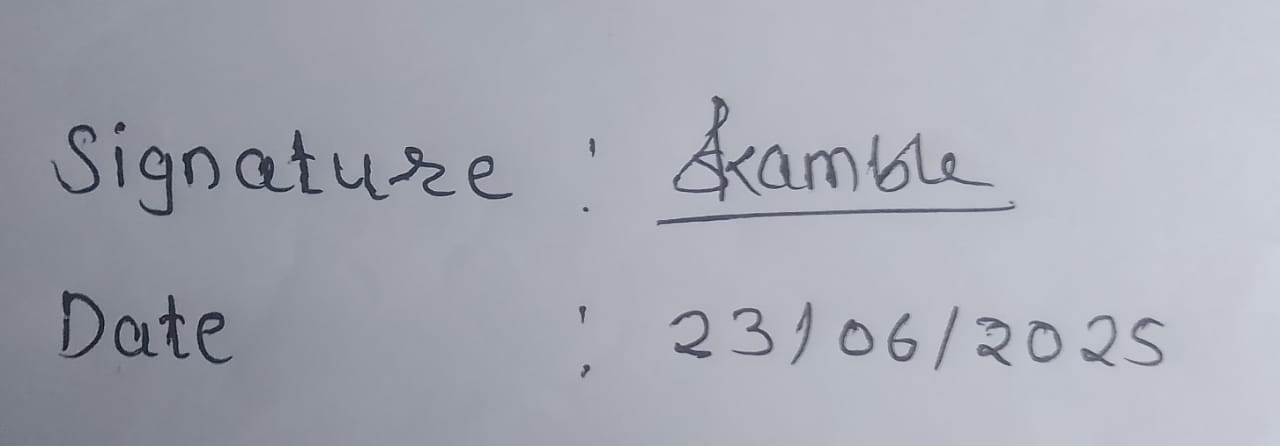 Signature : Skamble
Date : 23/06/2025